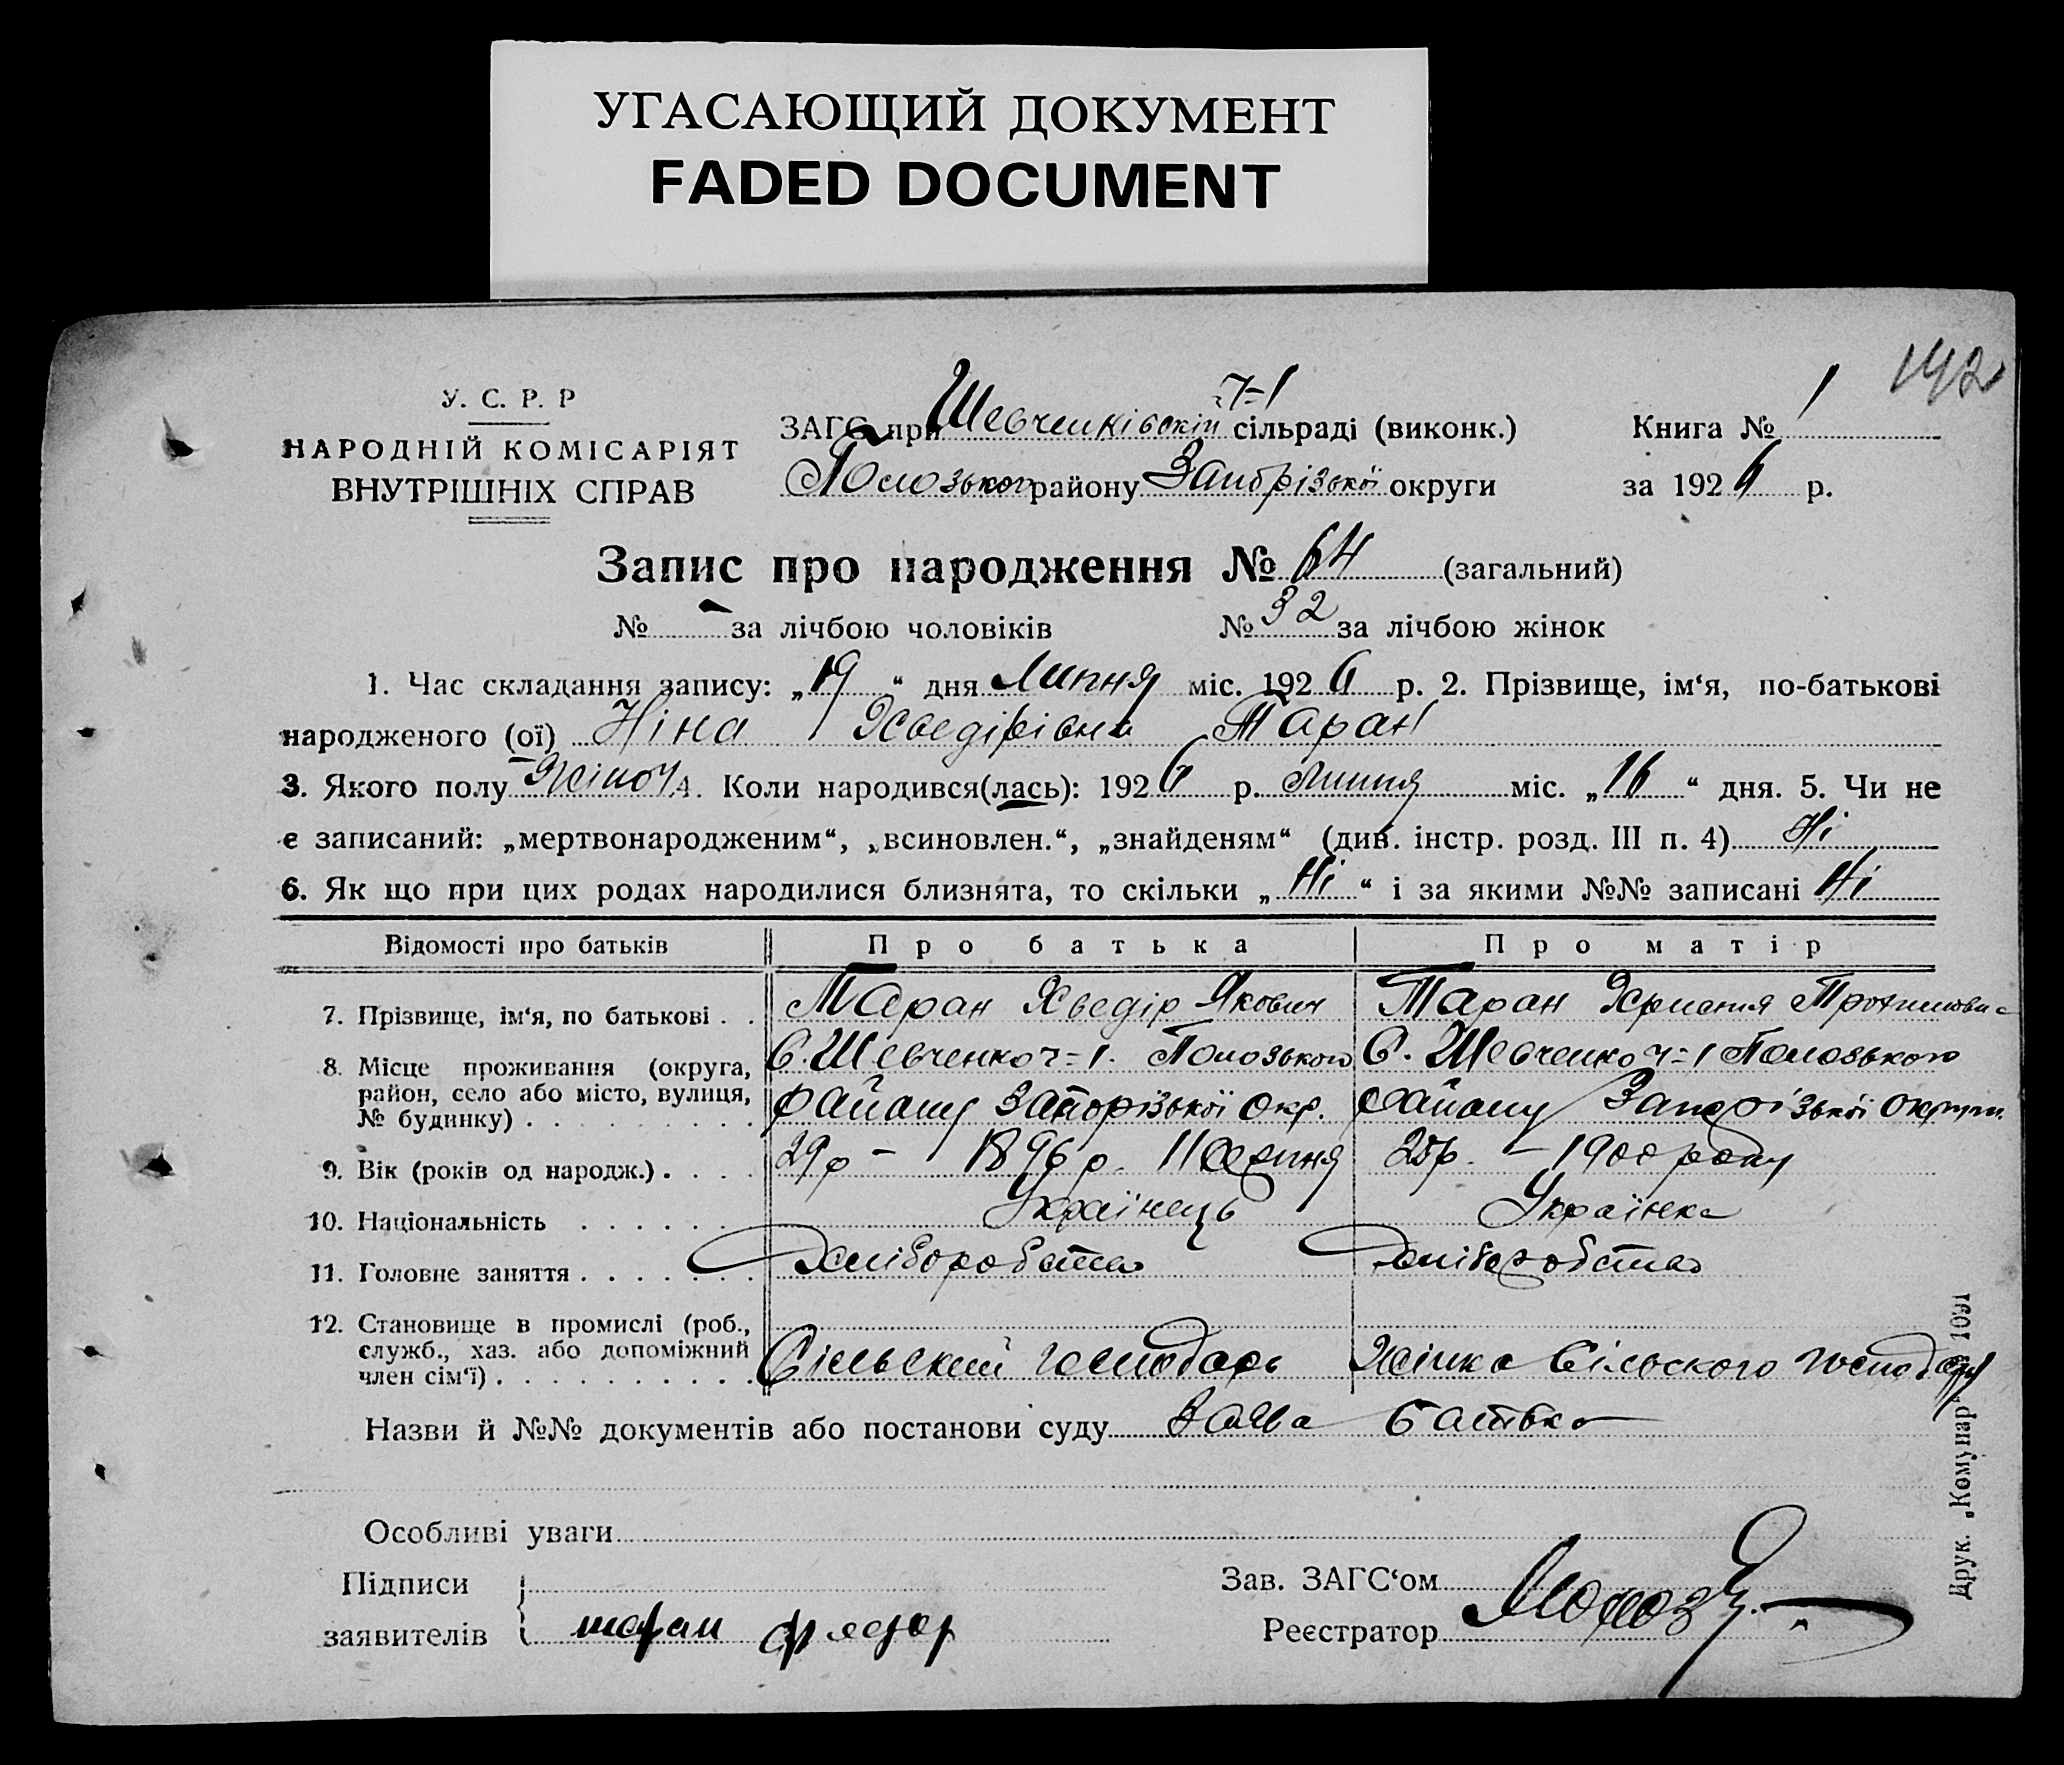 УГАСАЮЩИЙ ДОКУМЕНТ
FADED DOCUMENT
192
У. С. Р. Р
НАРОДНІЙ КОМІСАРІЯТ
ВНУТРІШНІХ СПРАВ
ЗАГС при Шевченківскій Ч=1 сільраді (виконк.) Книга № 1
Полозького району Запорізької округи за 1926 р.
Запис про народження № 64 (загальний)
№ - за лічбою чоловіків № 32 за лічбою жінок
1. Час складання запису: „19“ дня Липня міс. 1926 р. 2. Прізвище, ім‘я, по-батькові
народженого (ої) Ніна Хведірівна Таран
3. Якого полу Жіноч 4. Коли народився(лась): 1926 р. Липня міс. „16“ дня. 5. Чи не
є записаний: „мертвонародженим“, „всиновлен.“, „знайденям“ (див. інстр. розд. III п. 4) Ні
6. Як що при цих родах народилися близнята, то скільки „Ні“ і за якими №№ записані Ні
Відомості про батьків Про батька Про матір
7. Прізвище, ім‘я, по батькові . . Таран Хведір Якович Таран
8. Місце проживання (округа, район, село або місто, вулиця, № будинку) . . . . . . . . .
С. Шевченко Ч=1. Полозького району Запорізької окр.
С. Шевченко Ч=1 Полозького району Запорізької округи
9. Вік (років од народж.) . . . . 29 р – 1896 р. 11 Серпня 25 р. – 1900 року
10. Національність . . . . . . Українець Українка
11. Головне заняття . . . . . . . Хліборобство Хліборобство
12. Становище в промислі (роб., служб., хаз. або допоміжний член сім‘ї) . . . . . . . . . .
Сільский господарь Жінка Сільского господаря
Назви й №№ документів або постанови суду Заява батька
Особливі уваги
Підписи
заявителів таран федор
Зав. ЗАГС‘ом
Реєстратор
Друк. „Комунар“ 1091